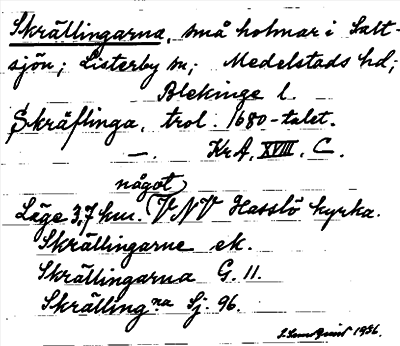 Skrällingarna, små holmar i Salt-
sjön; Listerby sn; Medelstads hd;
Blekinge l.
Skräflinga, trol. 1680-talet.
—. Kr.A. XVIII. C.
något
Läge 3,7 km. (VNV Hasslö kyrka.
Skrällingarne ek.
Skrällingarna G. 11.
Skrälling.na Sj 96.
1956.